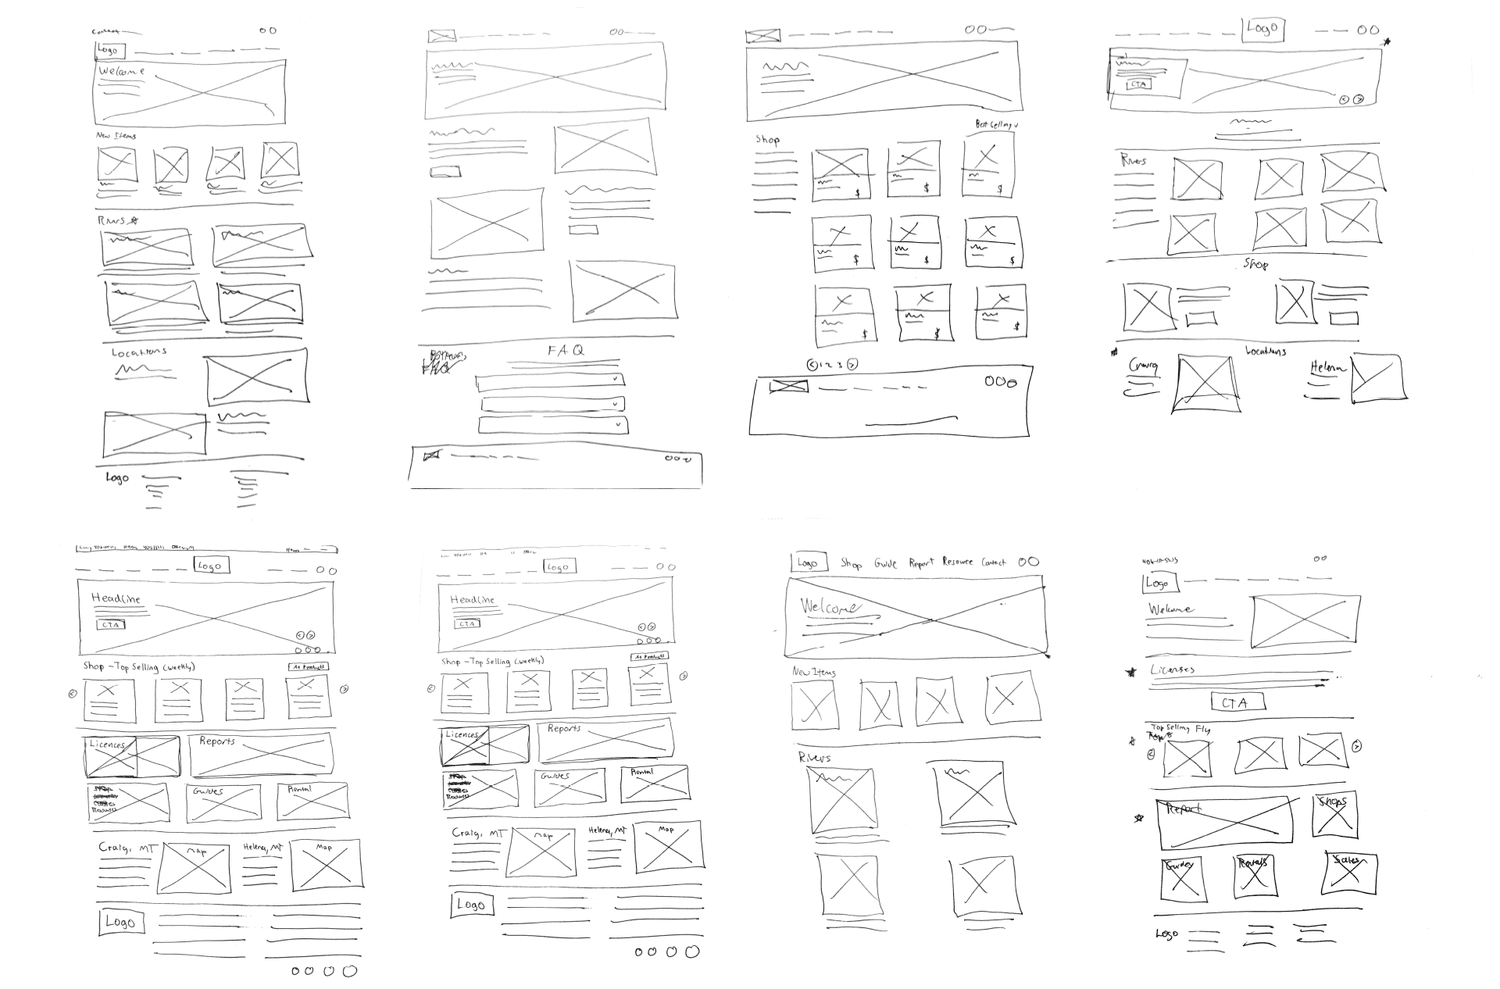 Logo
Welcome
New Items
Rivers
Locations
Logo
FAQ
FAQ
Best Selling
Shop
$
$
$
$
$
$
$
$
$
1 2 3
Logo
CTA
Rivers
Shop
Locations
Craig
Helena
Logo
Headline
CTA
Shop - Top Selling (weekly)
Licences
Reports
Guides
Rental
Craig, MT
Map
Helena, MT
Map
Logo
Logo
Headline
CTA
Shop - Top Selling (weekly)
Licences
Reports
Guides
Rental
Craig, MT
Map
Helena, MT
Map
Logo
Logo Shop Guide Report Resource Contact
Welcome
New Items
Rivers
Logo
Welcome
Licenses
CTA
Top Selling Fly
Report
Shops
Guides
Sales
Logo